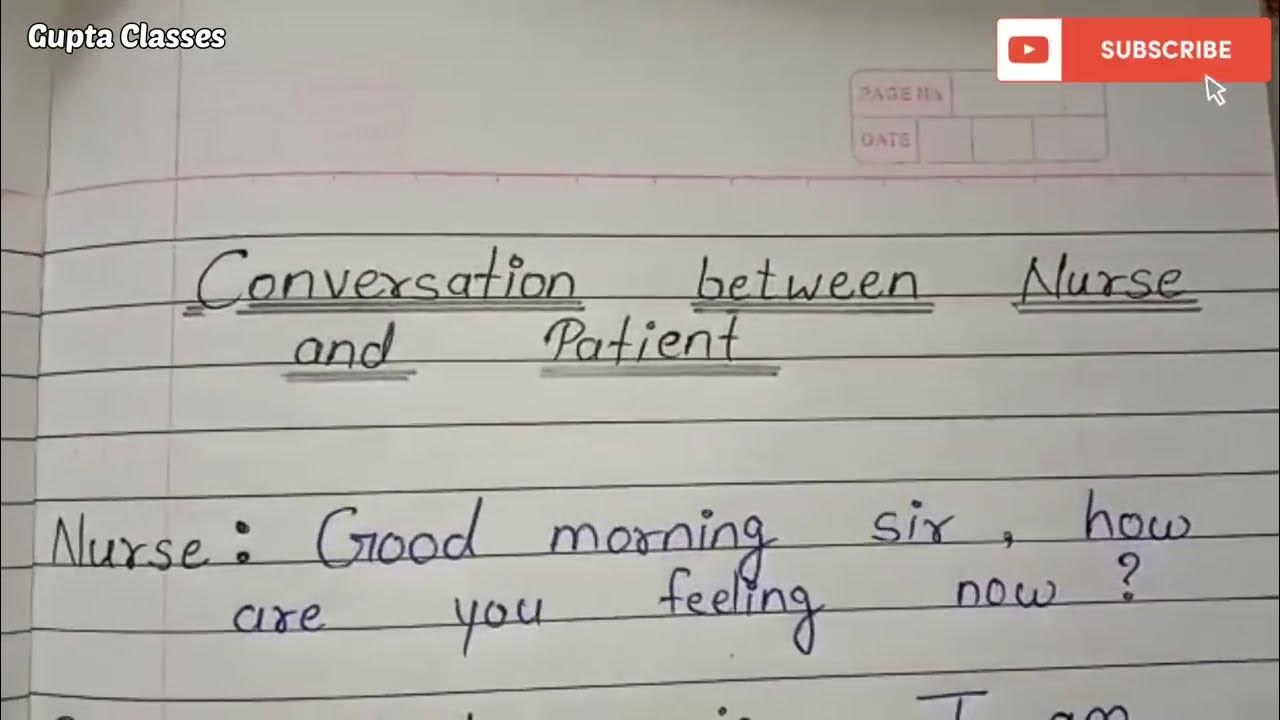 Gupta Classes
SUBSCRIBE
PAGE No.
DATE
Conversation between Nurse
and Patient
Nurse: Good morning sir, how
are you feeling now?
I am